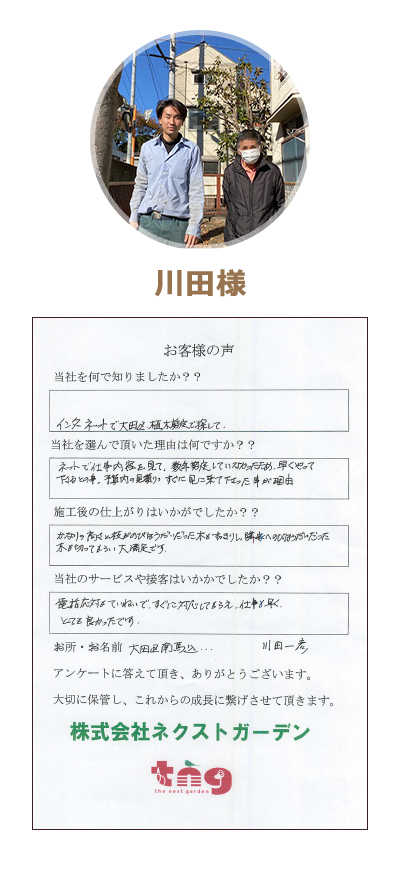 川田様
お客様の声
当社を何で知りましたか？？
インターネットで大田区、植木剪定で探して.
当社を選んで頂いた理由は何ですか？？
ネットで仕事内容を見て、数年剪定していなかったため、早くやって
下さるとの事。予算内の見積り すぐに見に来て下さった事が理由
施工後の仕上がりはいかがでしたか？？
かなりの高さに枝がのびほうだいだった木がすっきりし、隣家へのびほうだいだった
木も切ってもらい大満足です.
当社のサービスや接客はいかかでしたか？？
電話応対もていねいで、すぐに対応してもらえ、仕事も早く、
とても良かったです.
お所・お名前 大田区南馬込... 川田一彦
アンケートに答えて頂き、ありがとうございます。
大切に保管し、これからの成長に繋げさせて頂きます。
株式会社ネクストガーデン
tng
the next garden